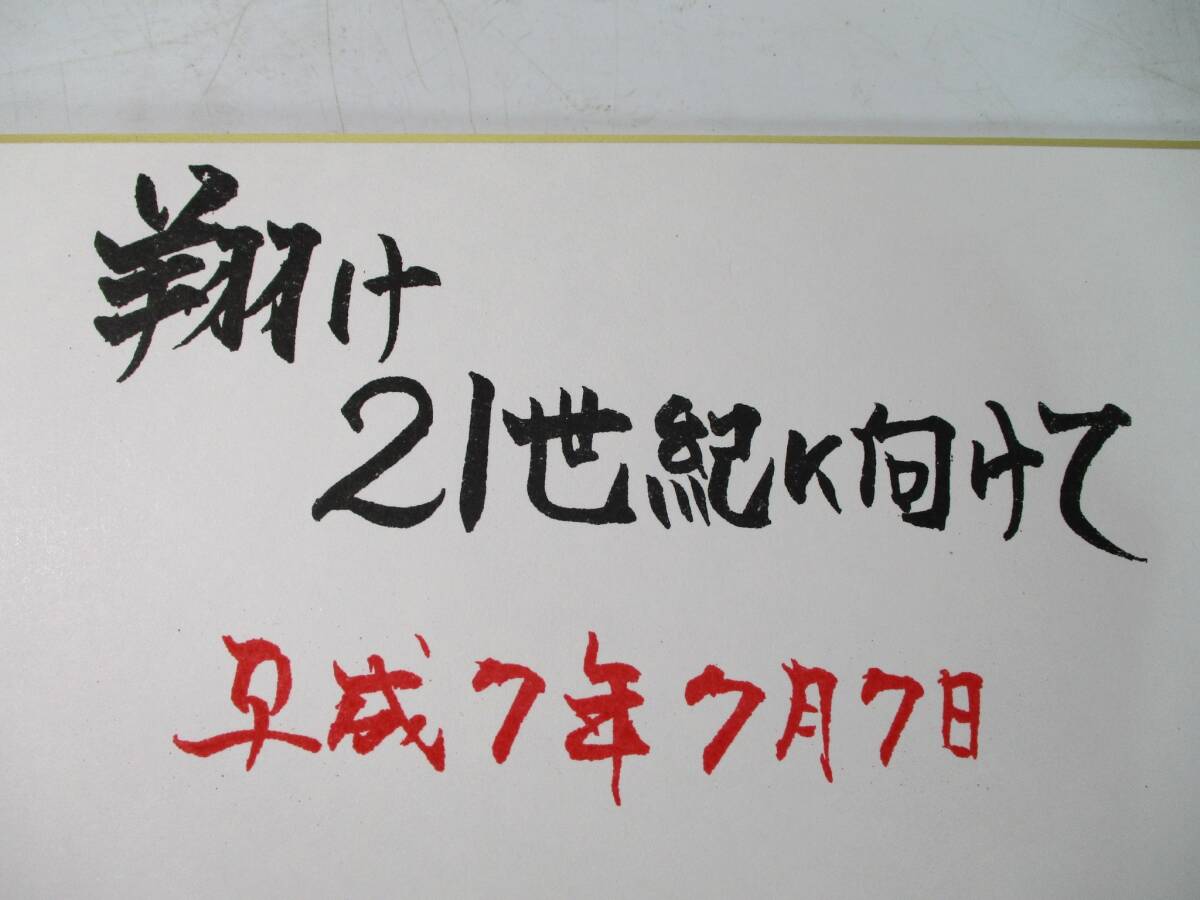 翔け
21世紀に向けて
平成7年7月7日